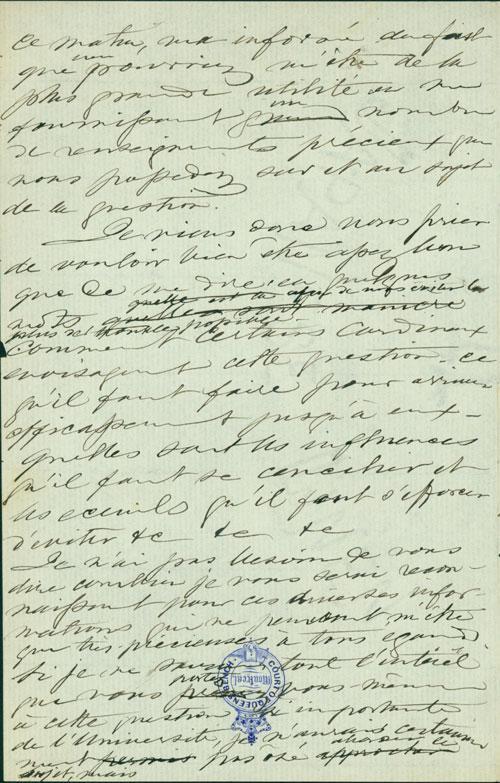 ce matin, m'a informé du fait
que vous pourriez m'être de la
plus grande utilité en me
fournissant un nombre
de renseignements précieux que
vous possédez sur et au sujet
de la question.
Je viens donc vous prier
de vouloir bien être assez bon
que de me dire en quelques
mots
comment certains Cardinaux
envisagent cette question - ce
qu'il faut faire pour arriver
efficacement jusqu'à eux -
quelles sont les influences
qu'il faut se concilier et
les écueils qu'il faut s'efforcer
d'éviter &c &c &c
Je n'ai pas besoin de vous
dire combien je vous serai recon-
naissant pour ces diverses infor-
mations qui ne peuvent m'être
que très précieuses à tous égards
Si je ne tout l'intérêt
que vous portez vous même
à cette question si importante
de l'Université, je n'aurais certaine-
ment pas osé
sujet, mais
COURT OF QUEENS BENCH
Montreal